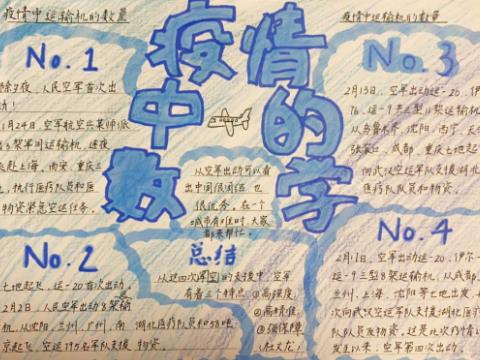 疫情中运输机的数量
疫情中运输机的数量
疫情
中的
数学
No.1
除夕夜,人民空军首次出
动!
1月24日,空军航空兵某师派
出3架军用运输机,连夜
飞赴上海、西安、重庆三
地,执行医疗队员和医
物资紧急空运任务。
No.2
七地起飞,运-20首次出动。
2月2日,人民空军出动8架运输
机,从沈阳、兰州、广州、南
京起飞,空运795名军队支援
湖北医疗队员和58吨
物资。
从空军出动可以看
出中国很团结,也
很优秀。在一个
城市有难时,大家
都来帮忙。
总结
从这四次空军的支援中,空军
有着三个特点:①高强度;
②高标准;
③强保障
(壮大龙)
No.3
2月13日,空军出动运-20、伊尔-
76、运-9共三型11架运输机,
从乌鲁木齐、沈阳、西宁、天津、
张家口、成都、重庆七地起飞
向武汉空运军队支援湖北
医疗队队员和物资。
No.4
2月17日,空军出动运-20、伊尔-
运-9三型8架运输机,从成都、
兰州、上海、沈阳等七地出发,
次向武汉空运军队支援湖北医疗
队队员及物资,这是此次疫情以
发生以来,空军第四次出动。